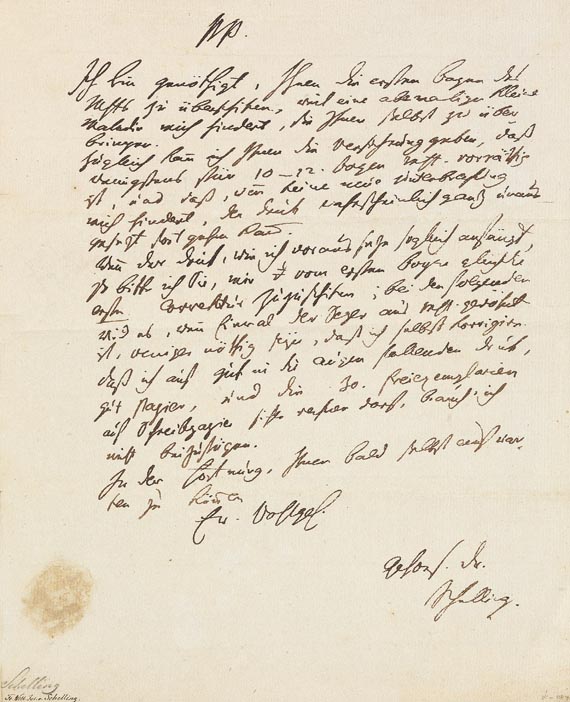 PP.
Ich bin genöthigt, Ihnen die ersten Bogen des
Msspts zu überschicken, weil eine abermalige kleine
Maladie mich hindert, sie Ihnen selbst zu über
bringen.
Zugleich kann ich Ihnen die Versicherung geben, daß
wenigstens für 10 – 12. Bogen Msspt. vorräthig
ist, und daß, wenn keine neue Unterbrechung
mich hindert, der Druck wahrscheinlich ganz unaus-
gesetzt fort gehen kann.
Wenn der Druck, wie ich voraus setze sogleich anfängt,
so bitte ich Sie, mir vom ersten Bogen gleich die
erste Correktur zuzuschicken; bei den folgenden
wird es, wenn Einmal der Setzer ans Msspt. gewöhnt
ist, weniger nöthig seyn, daß ich selbst korrigire.
Daß ich auf gut in die Augen fallenden Druck,
gut Papier, und die 30. Freiexemplarien
auf Schreibpapier sicher rechnen darf, brauch' ich
nicht beizufügen.
In der Hoffnung, Ihnen bald selbst auf war-
ten zu können
Ew. Wohlgeb.
gehors. Dr.
Schelling.
Schelling
Fr. Wilh. Jos. v. Schelling.